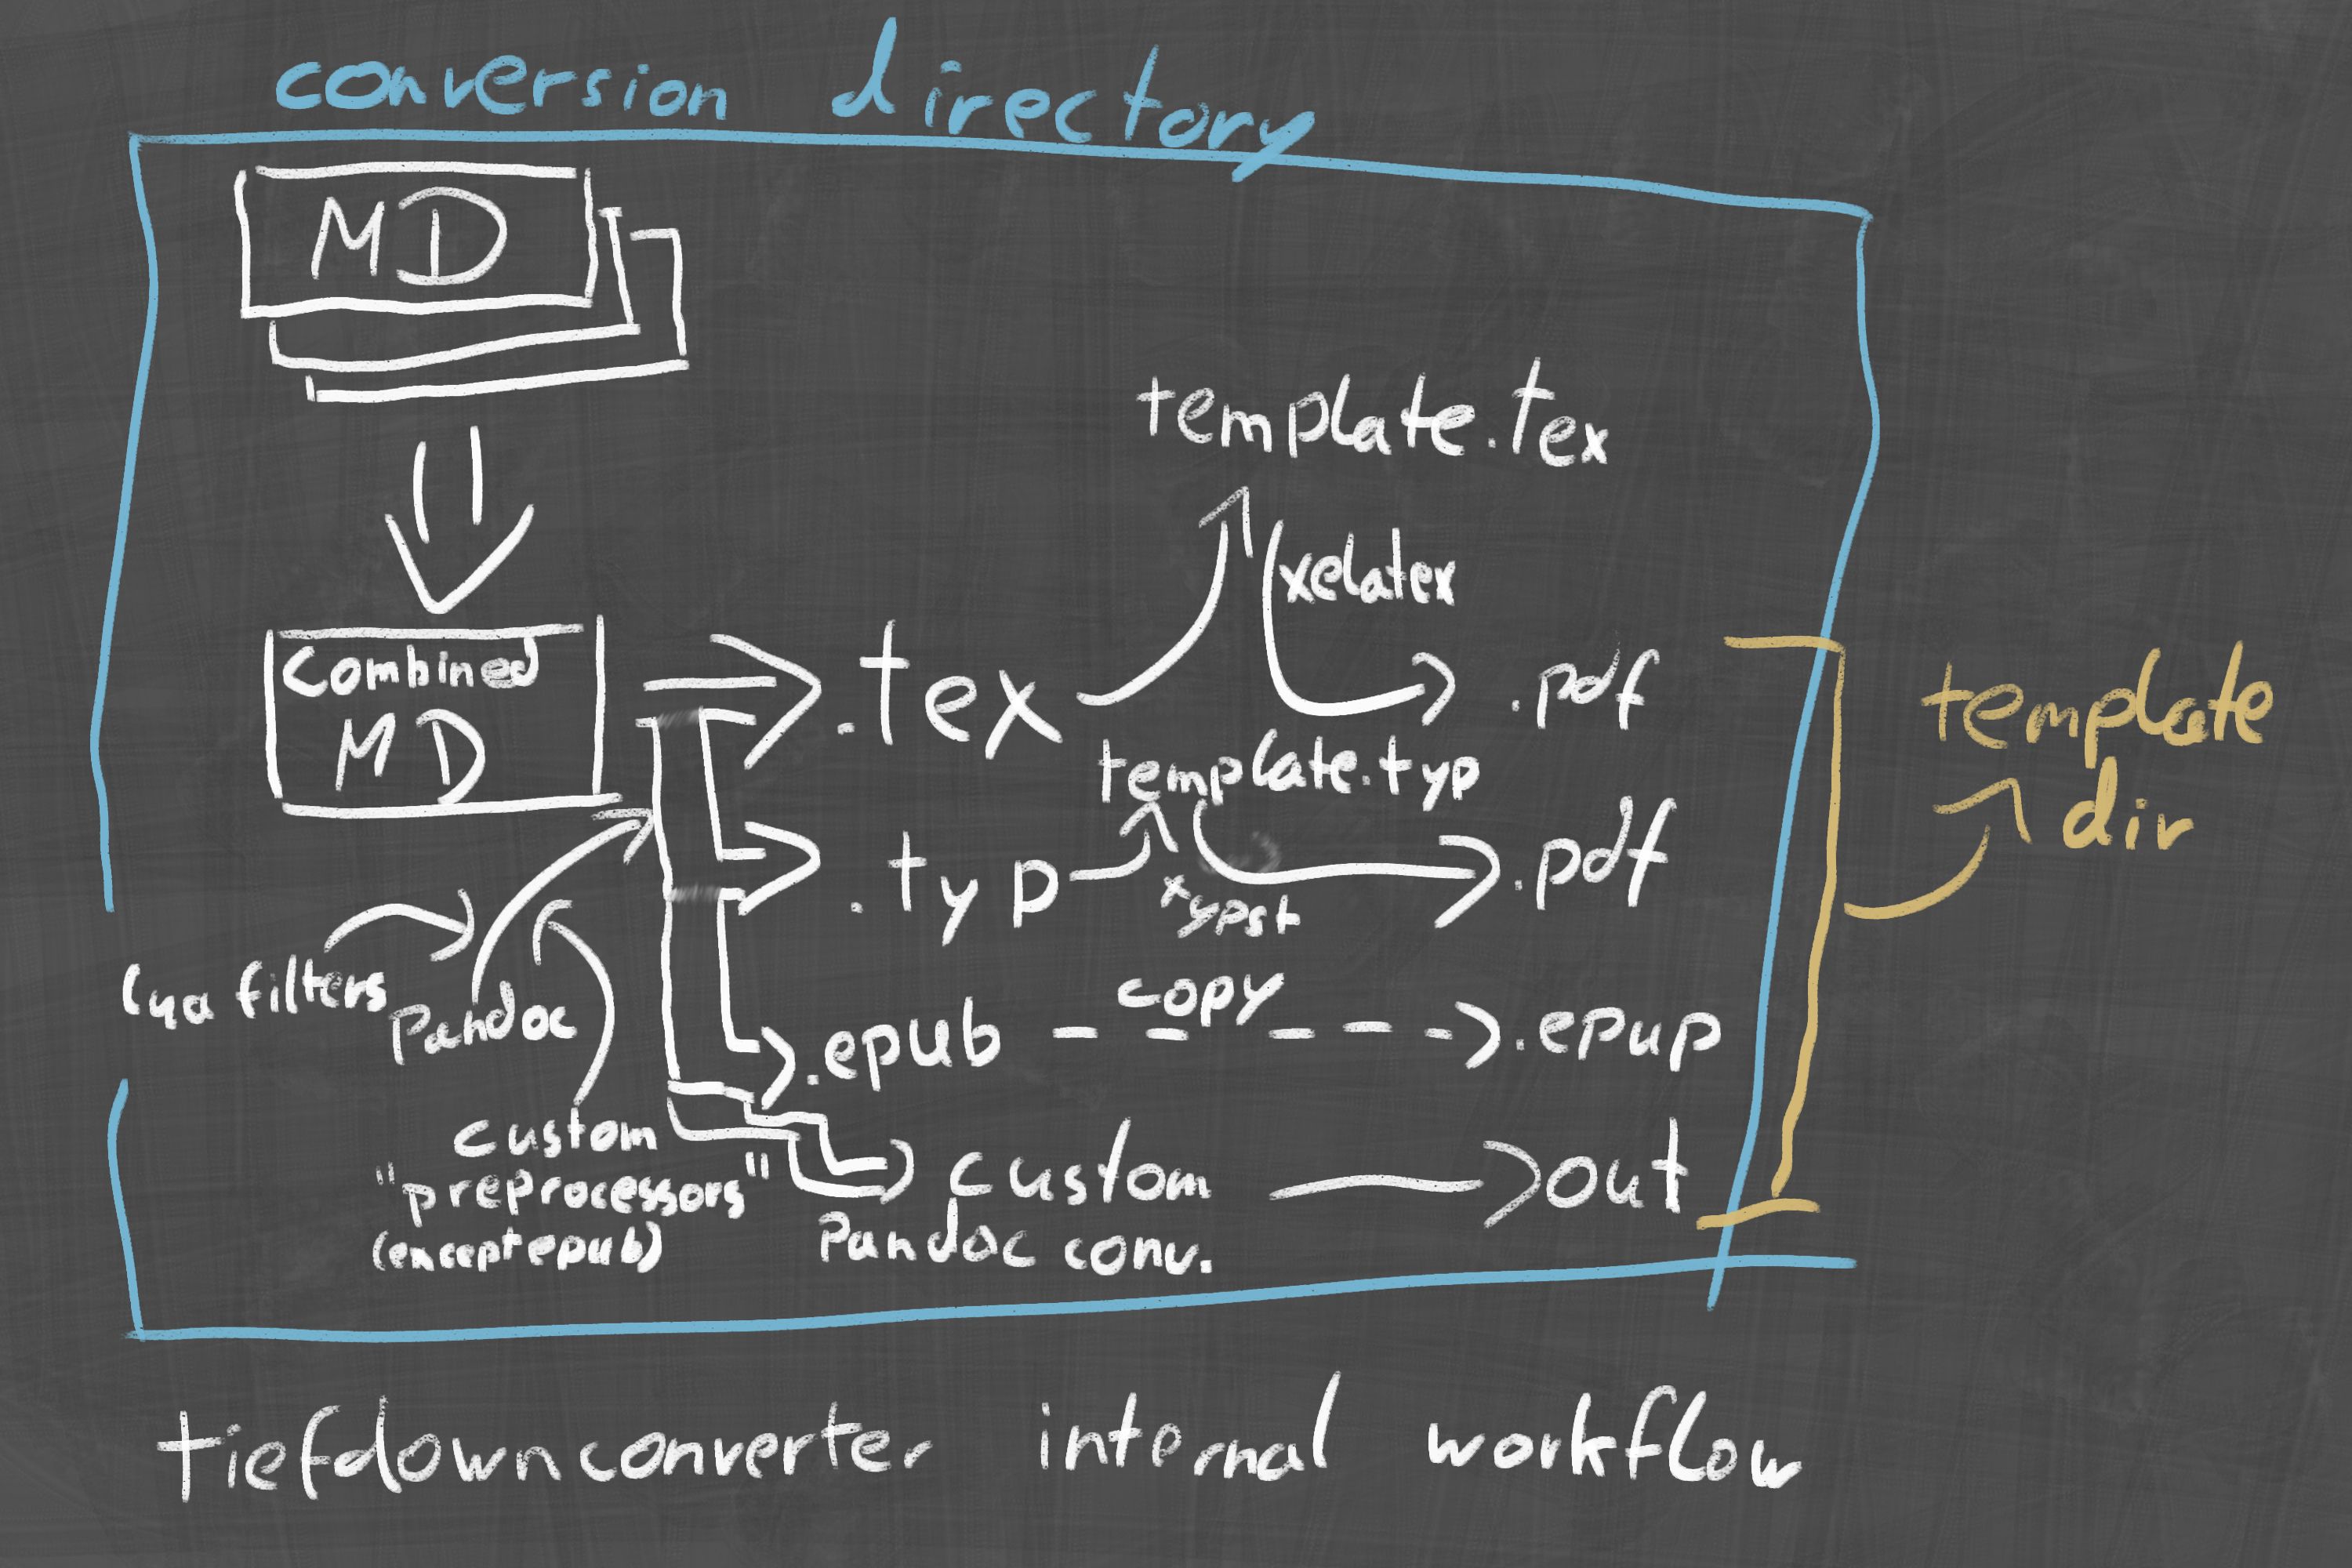 conversion directory
MD
template.tex
xelatex
combined
MD
.tex
.pdf
template
dir
template.typ
.typ
typst
.pdf
lua filters
Pandoc
copy
.epub
.epup
custom
"preprocessors"
(except epub)
custom
Pandoc conv.
out
tiefdownconverter internal workflow